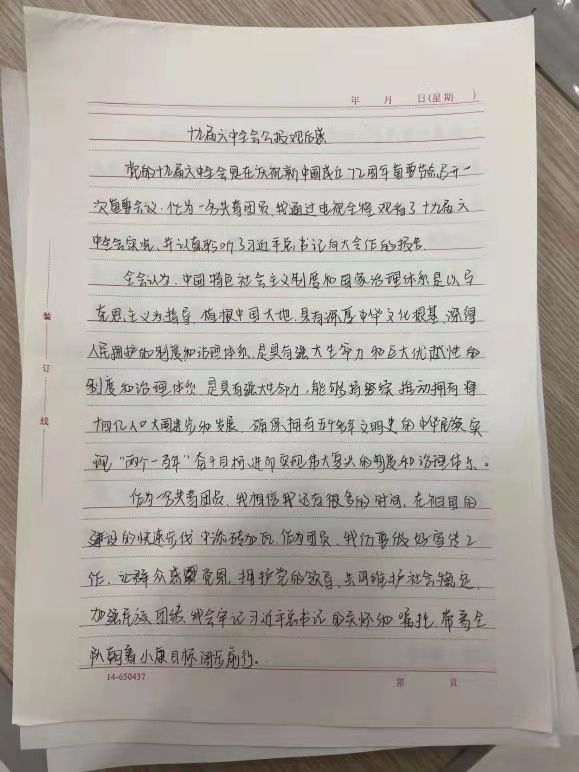 年 月 日(星期 )
十九届六中全会公报观后感
党的十九届六中全会是在庆祝新中国成立72周年重要节点召开一
次重要会议.作为一名共青团员,我通过电视全程观看了十九届六
中全会实况,并认真聆听了习近平总书记向大会作的报告.
全会认为,中国特色社会主义制度和国家治理体系是以马
克思主义为指导,植根中国大地,具有深厚中华文化根基,深得
人民拥护的制度和治理体系,是具有强大生命力和巨大优越性的
制度和治理体系,是具有强大生命力,能够持续推动拥有将
十四亿人口大国进步和发展,确保拥有五千多年文明史的中华民族实
现"两个一百年"奋斗目标进而实现伟大复兴的制度和治理体系。
作为一名共青团员,我相信我还有很多的时间,在祖国的
建设的快速步伐中添砖加瓦.作为团员,我们要做好宣传工
作,让群众感党恩,拥护党的领导,共同维护社会稳定,
加强民族团结.我会牢记习近平总书记的关怀和嘱托,带着全
队朝着小康目标阔步前行。
装
订
线
14-650437
第 页